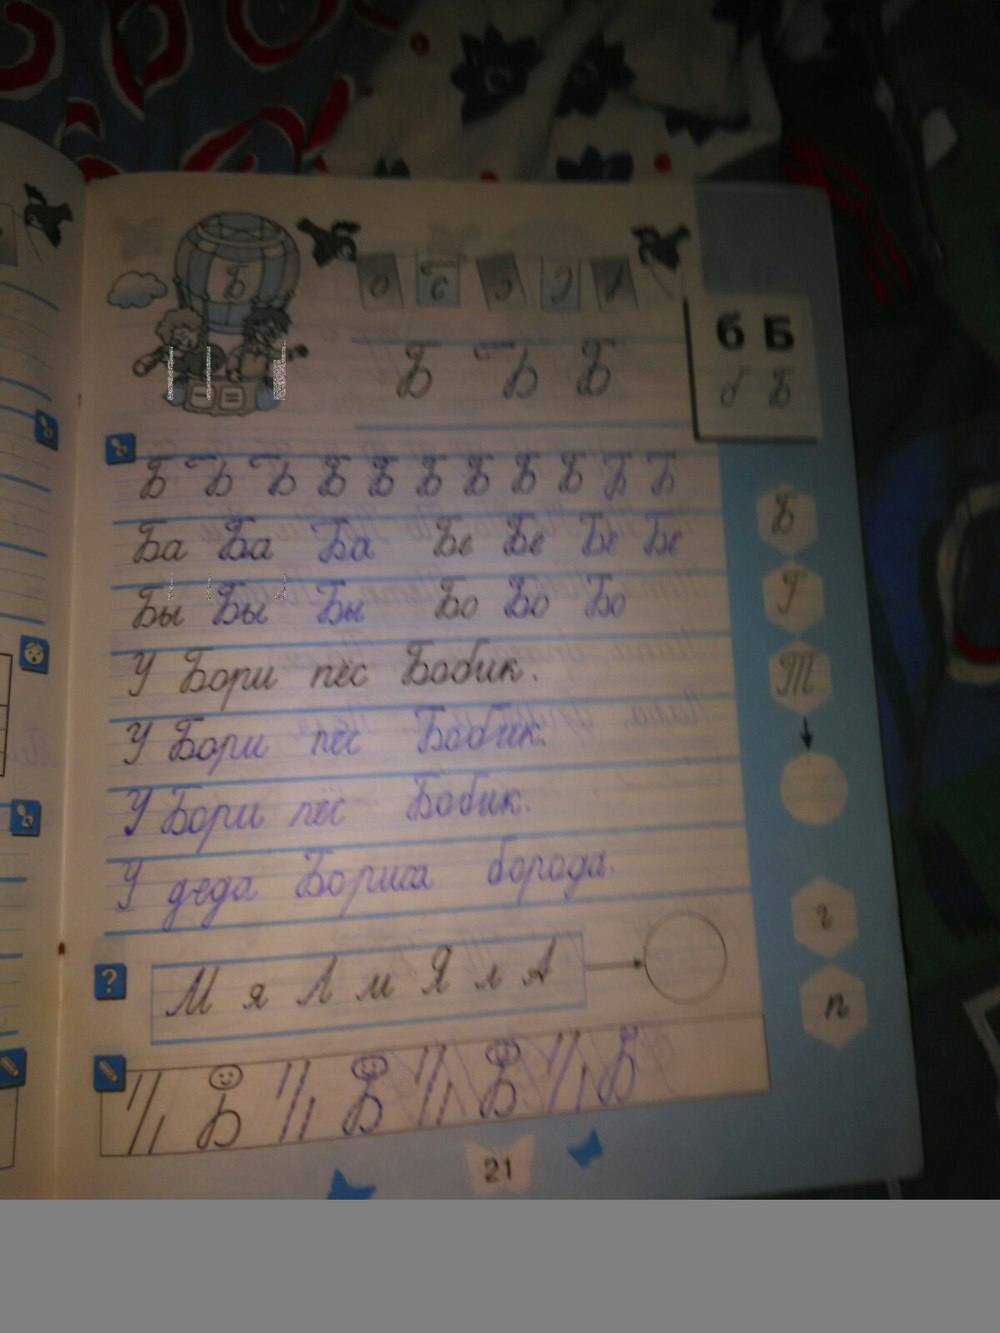 Б
б Б
б Б
Б Б
Б Б Б Б Б Б Б Б Б
Ба Ба Ба Бе Бе Бе Бе
Бы Бы Бы Бо Бо Бо
У Бори пёс Бобик.
У Бори пёс Бобик.
У Бори пёс Бобик.
У деда Бориса борода.
?
М я Л м Я л А
Б
Г
Т
г
п
21